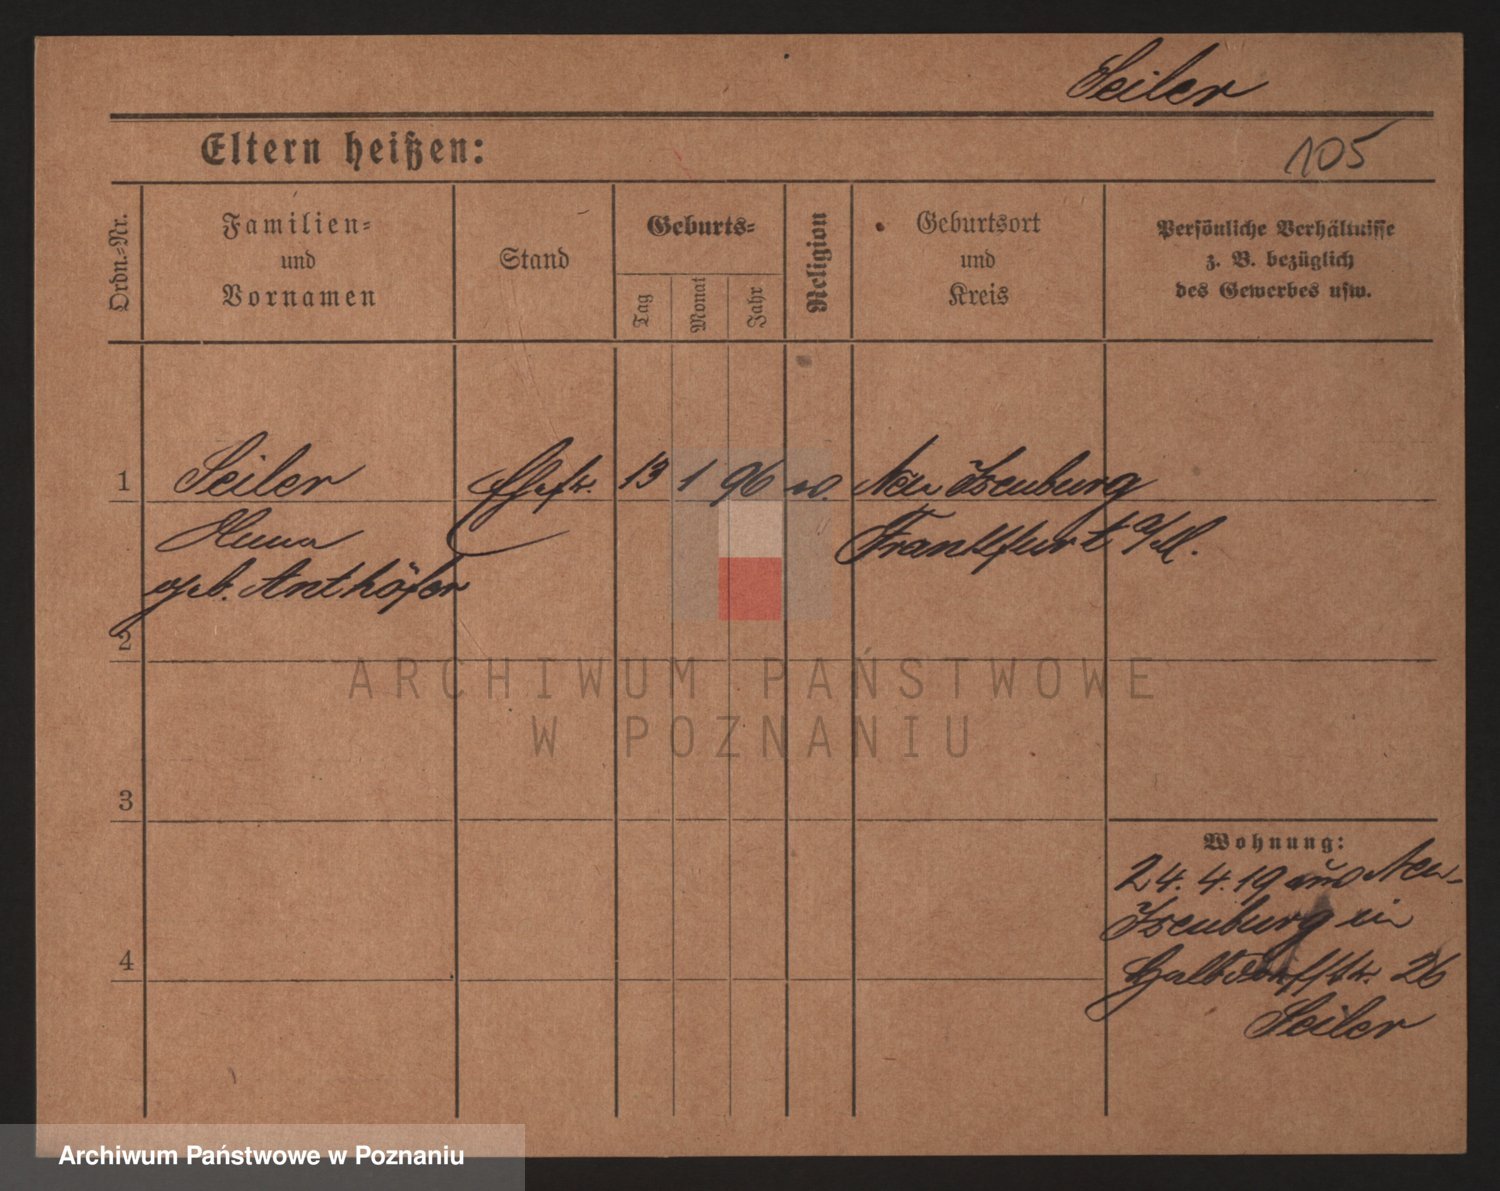 Seiler
Eltern heißen:
105
Ordn.-Nr.
Familien-
und
Vornamen
Stand
Geburts-
Tag
Monat
Jahr
Religion
Geburtsort
und
Kreis
Persönliche Verhältnisse
z. B. bezüglich
des Gewerbes usw.
1 Seiler Ehefr. 13 1 96 Neu Isenburg
Frankfurt a/M.
geb. Anthöfer
2
ARCHIWUM PAŃSTWOWE
W POZNANIU
3
Wohnung:
24.4.19 aus Neu-
Isenburg in
4
26
Seiler
Archiwum Państwowe w Poznaniu